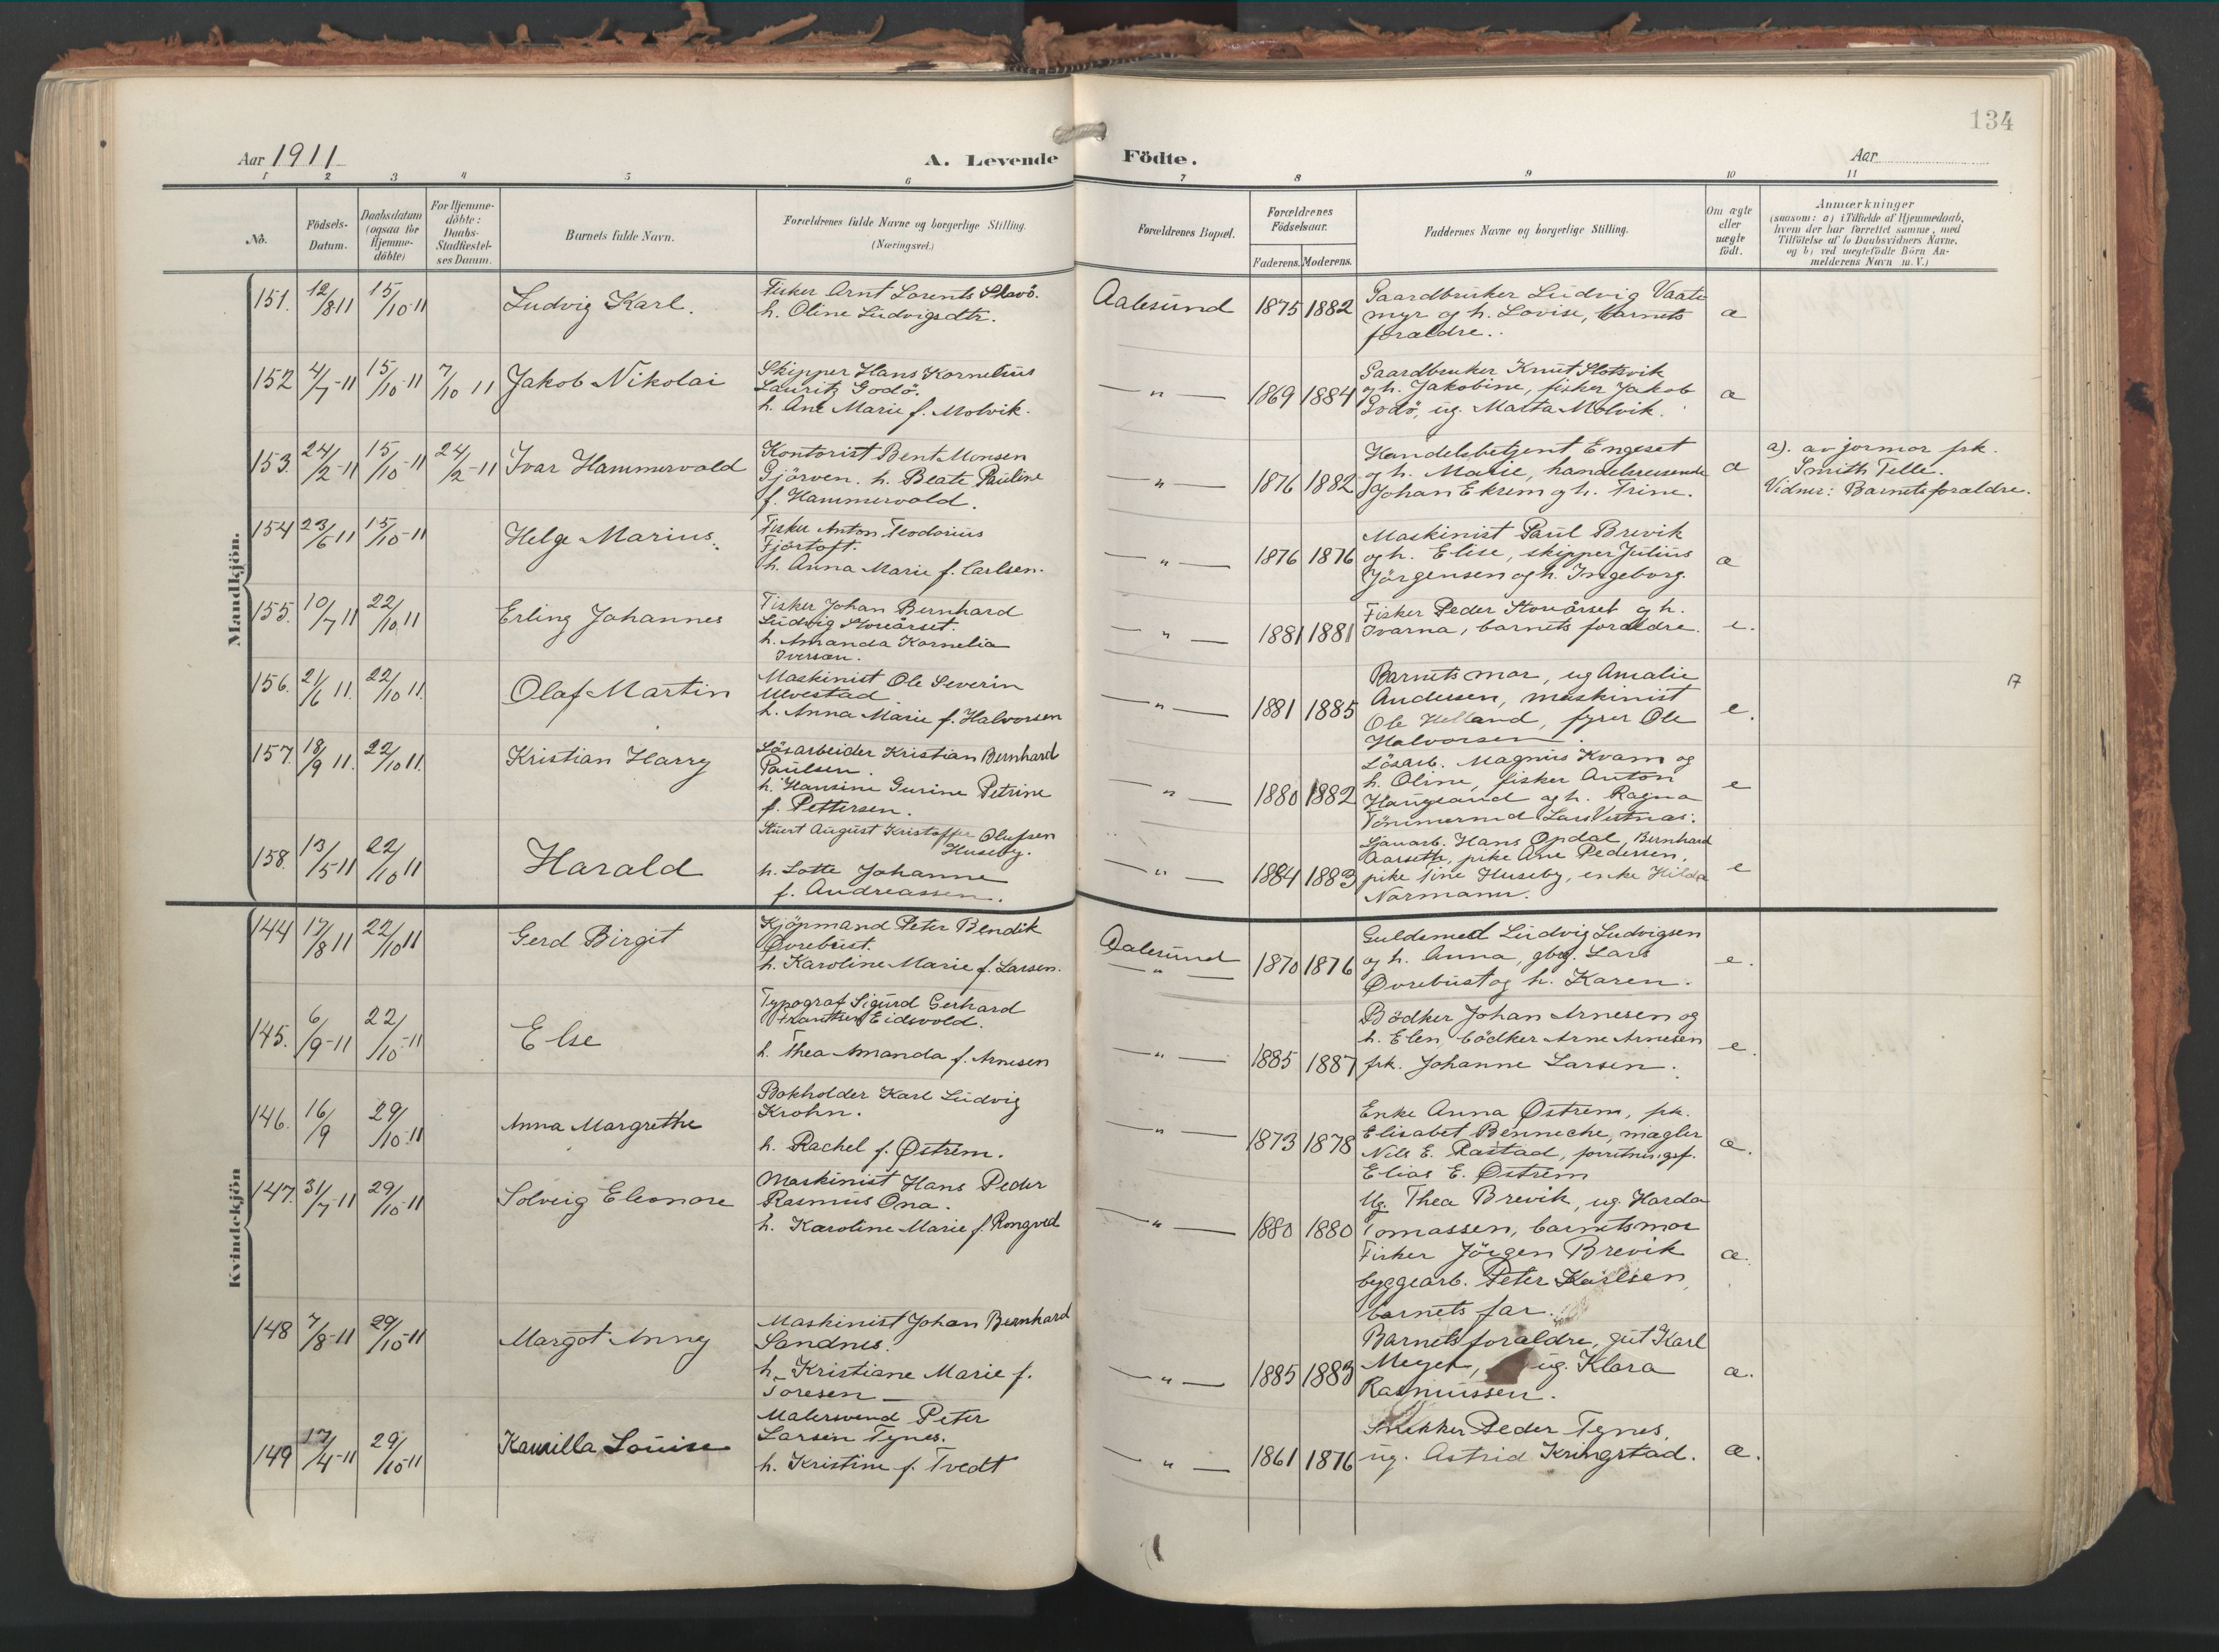 134
Aar 1911
A. Levende Födte.
Aar
1 2 3 4 5 6 7 8 9 10 11
No.
Födsels-
Datum.
Daabsdatum
(ogsaa for
Hjemme-
döbte)
For Hjemme-
döbte:
Daabs-
Stadfæstel-
ses Datum.
Barnets fulde Navn.
Forældrenes fulde Navne og borgerlige Stilling.
(Næringsvei.)
Forældrenes Bopæl.
Forældrenes
Födselsaar.
Faderens. Moderens.
Faddernes Navne og borgerlige Stilling.
Om ægte
eller
uægte
födt.
Anmærkninger
(saasom: a) i Tilfælde af Hjemmedaab,
hvem der har forrettet samme, med
Tilföielse af to Daabsvidners Navne.
og b) ved uægtefödte Börn An-
melderens Navn m. V.)
Mandkjön.
151. 12/8 11 15/10-11 Ludvig Karl.
Fisker Arnt Lorents
h. Oline Ludvigsdtr.
Aalesund 1875 1882
Gaardbruker Ludvig Vaate
myr og h. Lovise, barnets
foraldre.
æ
152 4/7-11 15/10-11 7/10 11 Jakob Nikolai
Skipper Hans Kornelius
Lauritz Godö.
h. Ane Marie f. Molvik.
— " — 1869 1884
Gaardbruker Knut Slotsvik
og h. Jakobine, fisker Jakob
Godö, ug. Marta Molvik.
æ
153. 24/2-11 15/10-11 24/2-11 Ivar Hammervold
Kontorist Bent Monsen
Gjörven. h. Beate Pauline
f. Hammervold.
— " — 1876 1882
Handelsbetjent Engeset
og h. Marie, handelsreisende
Johan Ekrem og h. Trine.
æ
a). av jormor frk.
Smith Telle.
Vidner: Barnets foraldre.
154 23/6 11 15/10-11 Helge Marius.
Fisker Anton Teodorius
Fjörtoft.
h. Anna Marie f. Carlsen.
— " — 1876 1876
Maskinist Paul Brevik
og h. Elise, skipper Julius
Jörgensen og h. Ingeborg.
æ
155. 10/7 11 22/10 11 Erling Johannes
Fisker Johan Bernhard
Ludvig Storeårset.
h. Amanda Kornelia
Iversen.
— " — 1881 1881
Fisker Peder Storeårset og h.
Ivarna, barnets foraldre.
e.
156. 21/6 11. 22/10 11. Olaf Martin
Maskinist Ole Severin
Ulvestad
h. Anna Marie f. Halvorsen
— " — 1881 1885
Barnets mor, ug Amalie
Andersen, maskinist
Ole Helland, fyrer Ole
Halvorsen.
e.
17
157. 18/9 11. 22/10 11. Kristian Harry
Lösarbeider Kristian Bernhard
Paulsen.
h. Hansine Gurine Petrine
f. Pettersen.
— " — 1880 1882
Lösarb. Magnus Kvam og
h. Oline, fisker Anton
Haugland og h. Ragna
Tömmermd Lars Vestnæs.
e
158. 13/5-11 22/10 11 Harald
Stuert August Kristoffer Olufsen
Huseby.
h. Lotte Johanne
f. Andreassen.
— " — 1884 1883
Sjauarb. Hans Opdal, Bernhard
Aarseth, pike Ane Pedersen,
pike Tine Huseby, enke Hilda
Normann.
e
Kvindekjön
144 17/8 11 22/10 11 Gerd Birgit
Kjöpmand Peter Bendik
Øvrebust.
h. Karoline Marie f. Larsen.
Aalesund
— " — 1870 1876
Guldsmed Ludvig Ludvigsen
og h. Anna, gbr. Lars
Øvrebust og h. Karen.
e.
145. 6/9-11 22/10-11 Else
Typograf Sigurd Gerhard
Frantsen Eidsvold.
h. Thea Amanda f. Arnesen
— " — 1885 1887
Bödker Johan Arnesen og
h. Elen, bödker Arne Arnesen
frk. Johanne Larsen.
e.
146. 16/9 29/10-11 Anna Margrethe
Bokholder Karl Ludvig
Krohn.
h. Rachel f. Østrem.
— " — 1873 1878
Enke Anna Østrem, frk.
Elisabet Benneche, mægler
Nils E. Rastad, forretningsf.
Elias E. Østrem
æ.
147. 31/7-11 29/10-11 Solveig Eleonore
Maskinist Hans Peder
Rasmus Ona.
h. Karoline Marie f. Rongved
— " — 1880 1880
Ug. Thea Brevik, ug. Harda
Tomassen, barnets mor
Fisker Jörgen Brevik
byggearb. Peter Karlsen,
barnets far.
æ.
148 7/8-11 29/10-11 Margot Anny
Maskinist Johan Bernhard
Sandnes.
h. Kristiane Marie f.
Toresen —
— " — 1885 1883
Barnets foraldre, gut Karl
Meyer, ug. Klara
Rasmussen.
æ.
149 17/4-11 29/10-11 Kamilla Louise
Malersvend Peter
Larsen Tynes.
h. Kristine f. Tvedt
— " — 1861 1876
Snekker Peder Tynes,
ug. Astrid Kringstad.
æ.